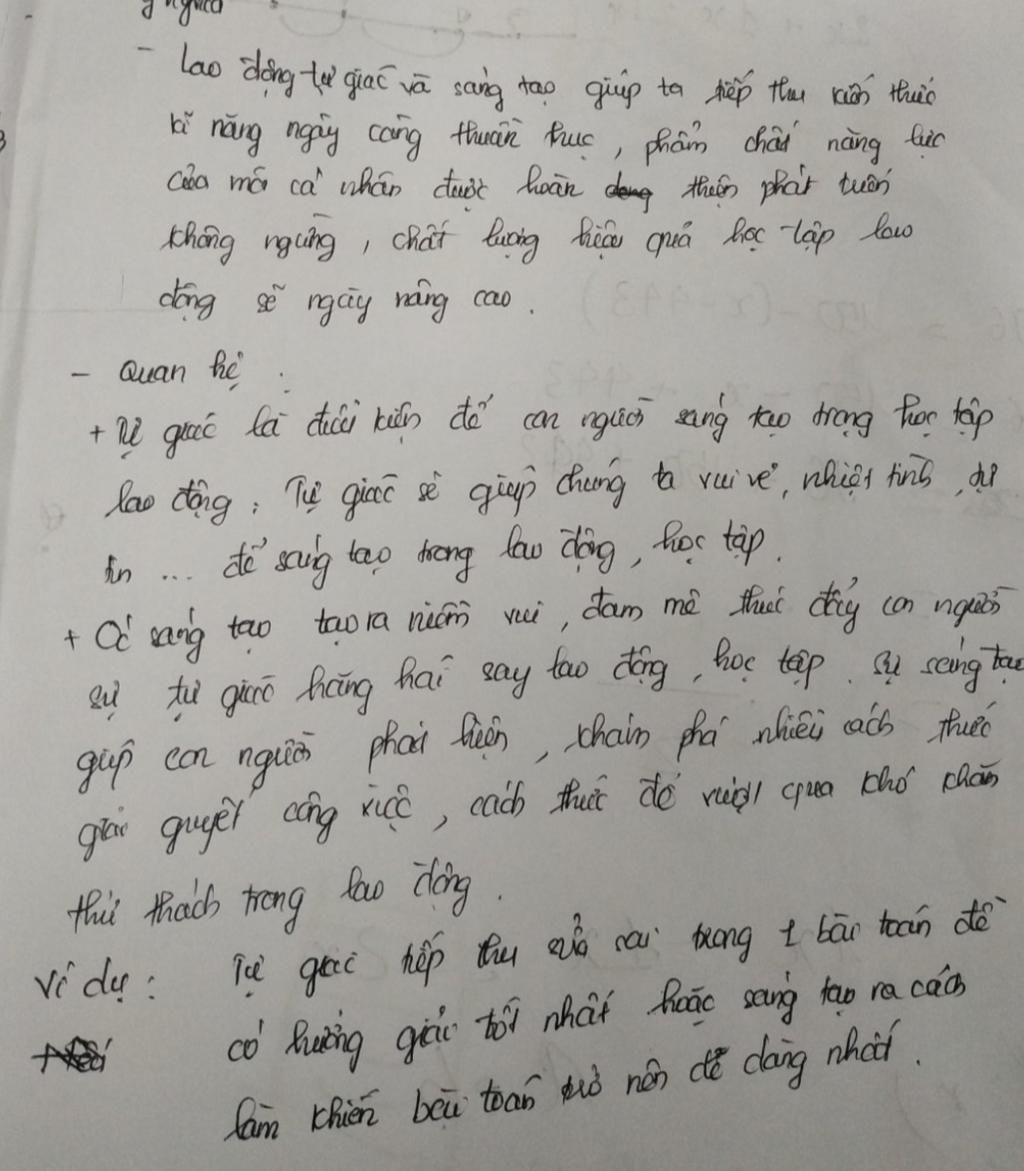 ý nghĩa
- Lao động tự giác và sáng tạo giúp ta tiếp thu kiến thức
kĩ năng ngày càng thuần thục, phẩm chất năng lực
của mỗi cá nhân được hoàn thiện phát triển
không ngừng, chất lượng hiệu quả học tập lao
động sẽ ngày nâng cao.
- Quan hệ :
+ Tự giác là điều kiện để con người sáng tạo trong học tập
lao động. Tự giác sẽ giúp chúng ta vui vẻ, nhiệt tình, tự
tin ... để sáng tạo trong lao động, học tập.
+ Có sáng tạo tạo ra niềm vui, đam mê thúc đẩy con người
sự tự giác hăng hái say lao động, học tập. Sự sáng tạo
giúp con người phát hiện, khám phá nhiều cách thức
giải quyết công việc, cách thức để vượt qua khó khăn
thử thách trong lao động.
Ví dụ : Tự giác tiếp thu sửa sai trong 1 bài toán để
có hướng giải tốt nhất hoặc sáng tạo ra cách
làm khiến bài toán trở nên dễ dàng nhất.